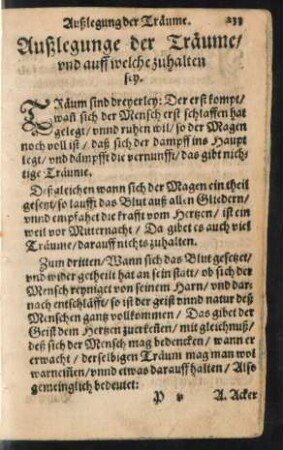 Außlegung der Träume. 233
Außlegunge der Träume/
vnd auff welche zuhalten
sey.
TRäum sind dreyerley: Der erst kompt/
wañ sich der Mensch erst schlaffen hat
gelegt/ vnnd ruhen wil/ so der Magen
noch voll ist/ daß sich der dampff ins Haupt
legt/ vnd dämpfft die vernunfft/ das gibt nich-
tige Träume.
Deßgleichen wann sich der Magen ein theil
gesetzt/ so laufft das Blut auß allen Gliedern/
vnnd empfahet die krafft vom Hertzen/ ist ein
weil vor Mitternacht/ Da gibet es auch viel
Träume/ darauff nichts zuhalten.
Zum dritten/ Wann sich das Blut gesetzet/
vnd wider getheilt hat an sein statt/ ob sich der
Mensch reyniget von seinem Harn/ vnd dar-
nach entschläfft/ so ist der geist vnnd natur deß
Menschen gantz vollkommen/ Das gibet der
Geist dem Hertzen zuerkeñen/ mit gleichnuß/
deß sich der Mensch mag bedencken/ wann er
erwacht/ derselbigen Träum mag man wol
warnemen/ vnnd etwas darauff halten/ Also
gemeinglich bedeutet:
P v A. Acker